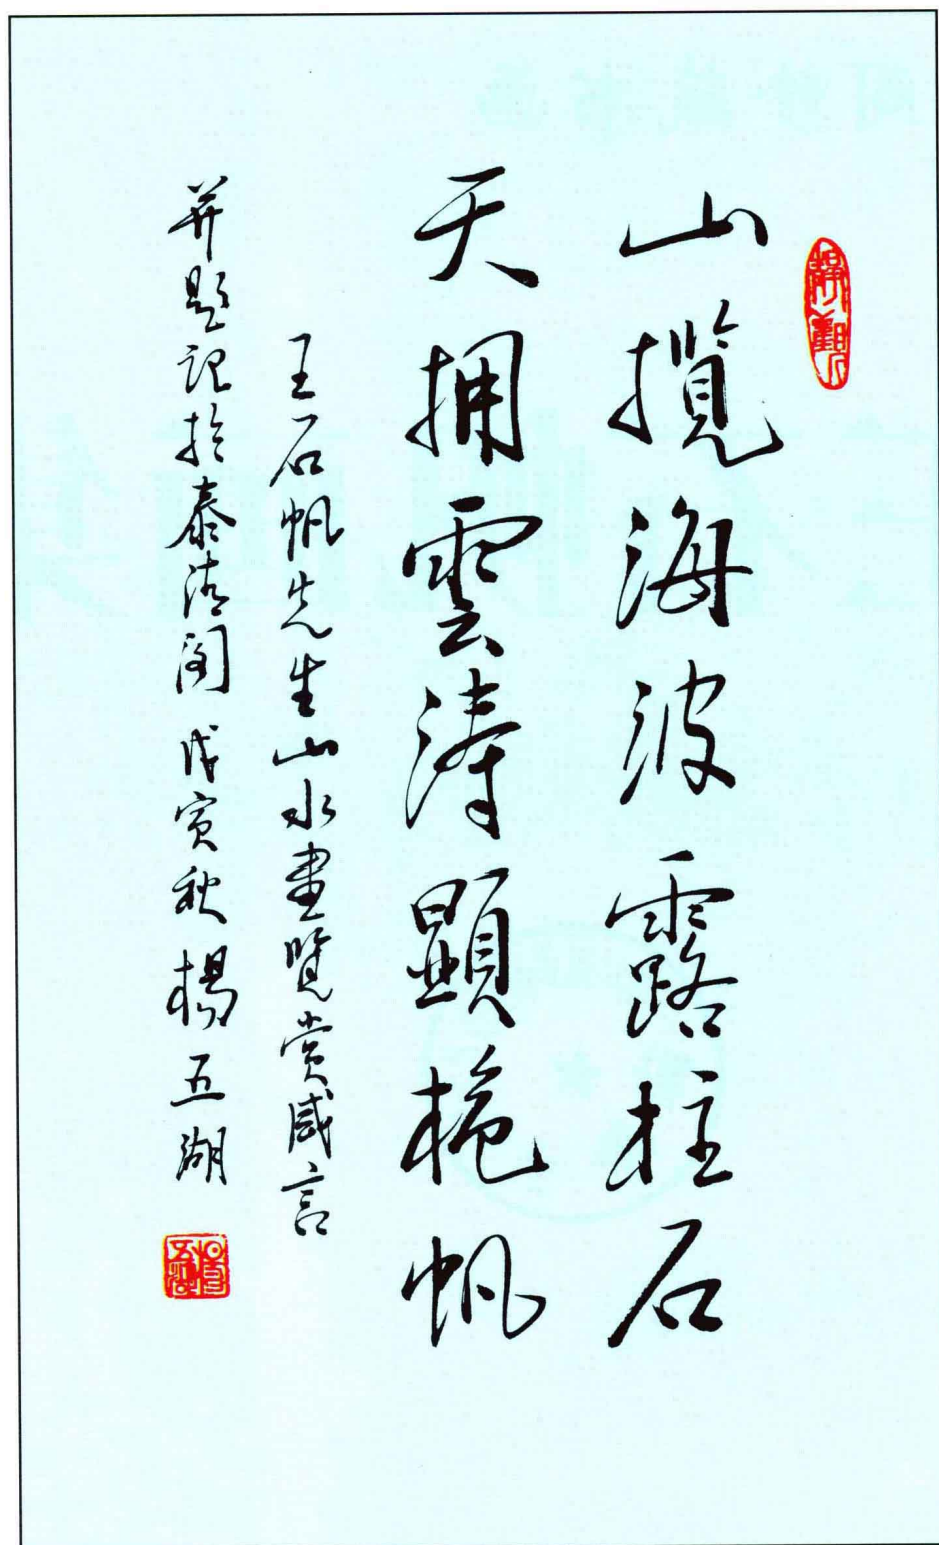 靜觀
山攬海波露柱石
天拥雲涛顯桅帆
王石帆先生山水畫览赏感言
并题记於泰清阁戊寅秋楊五湖